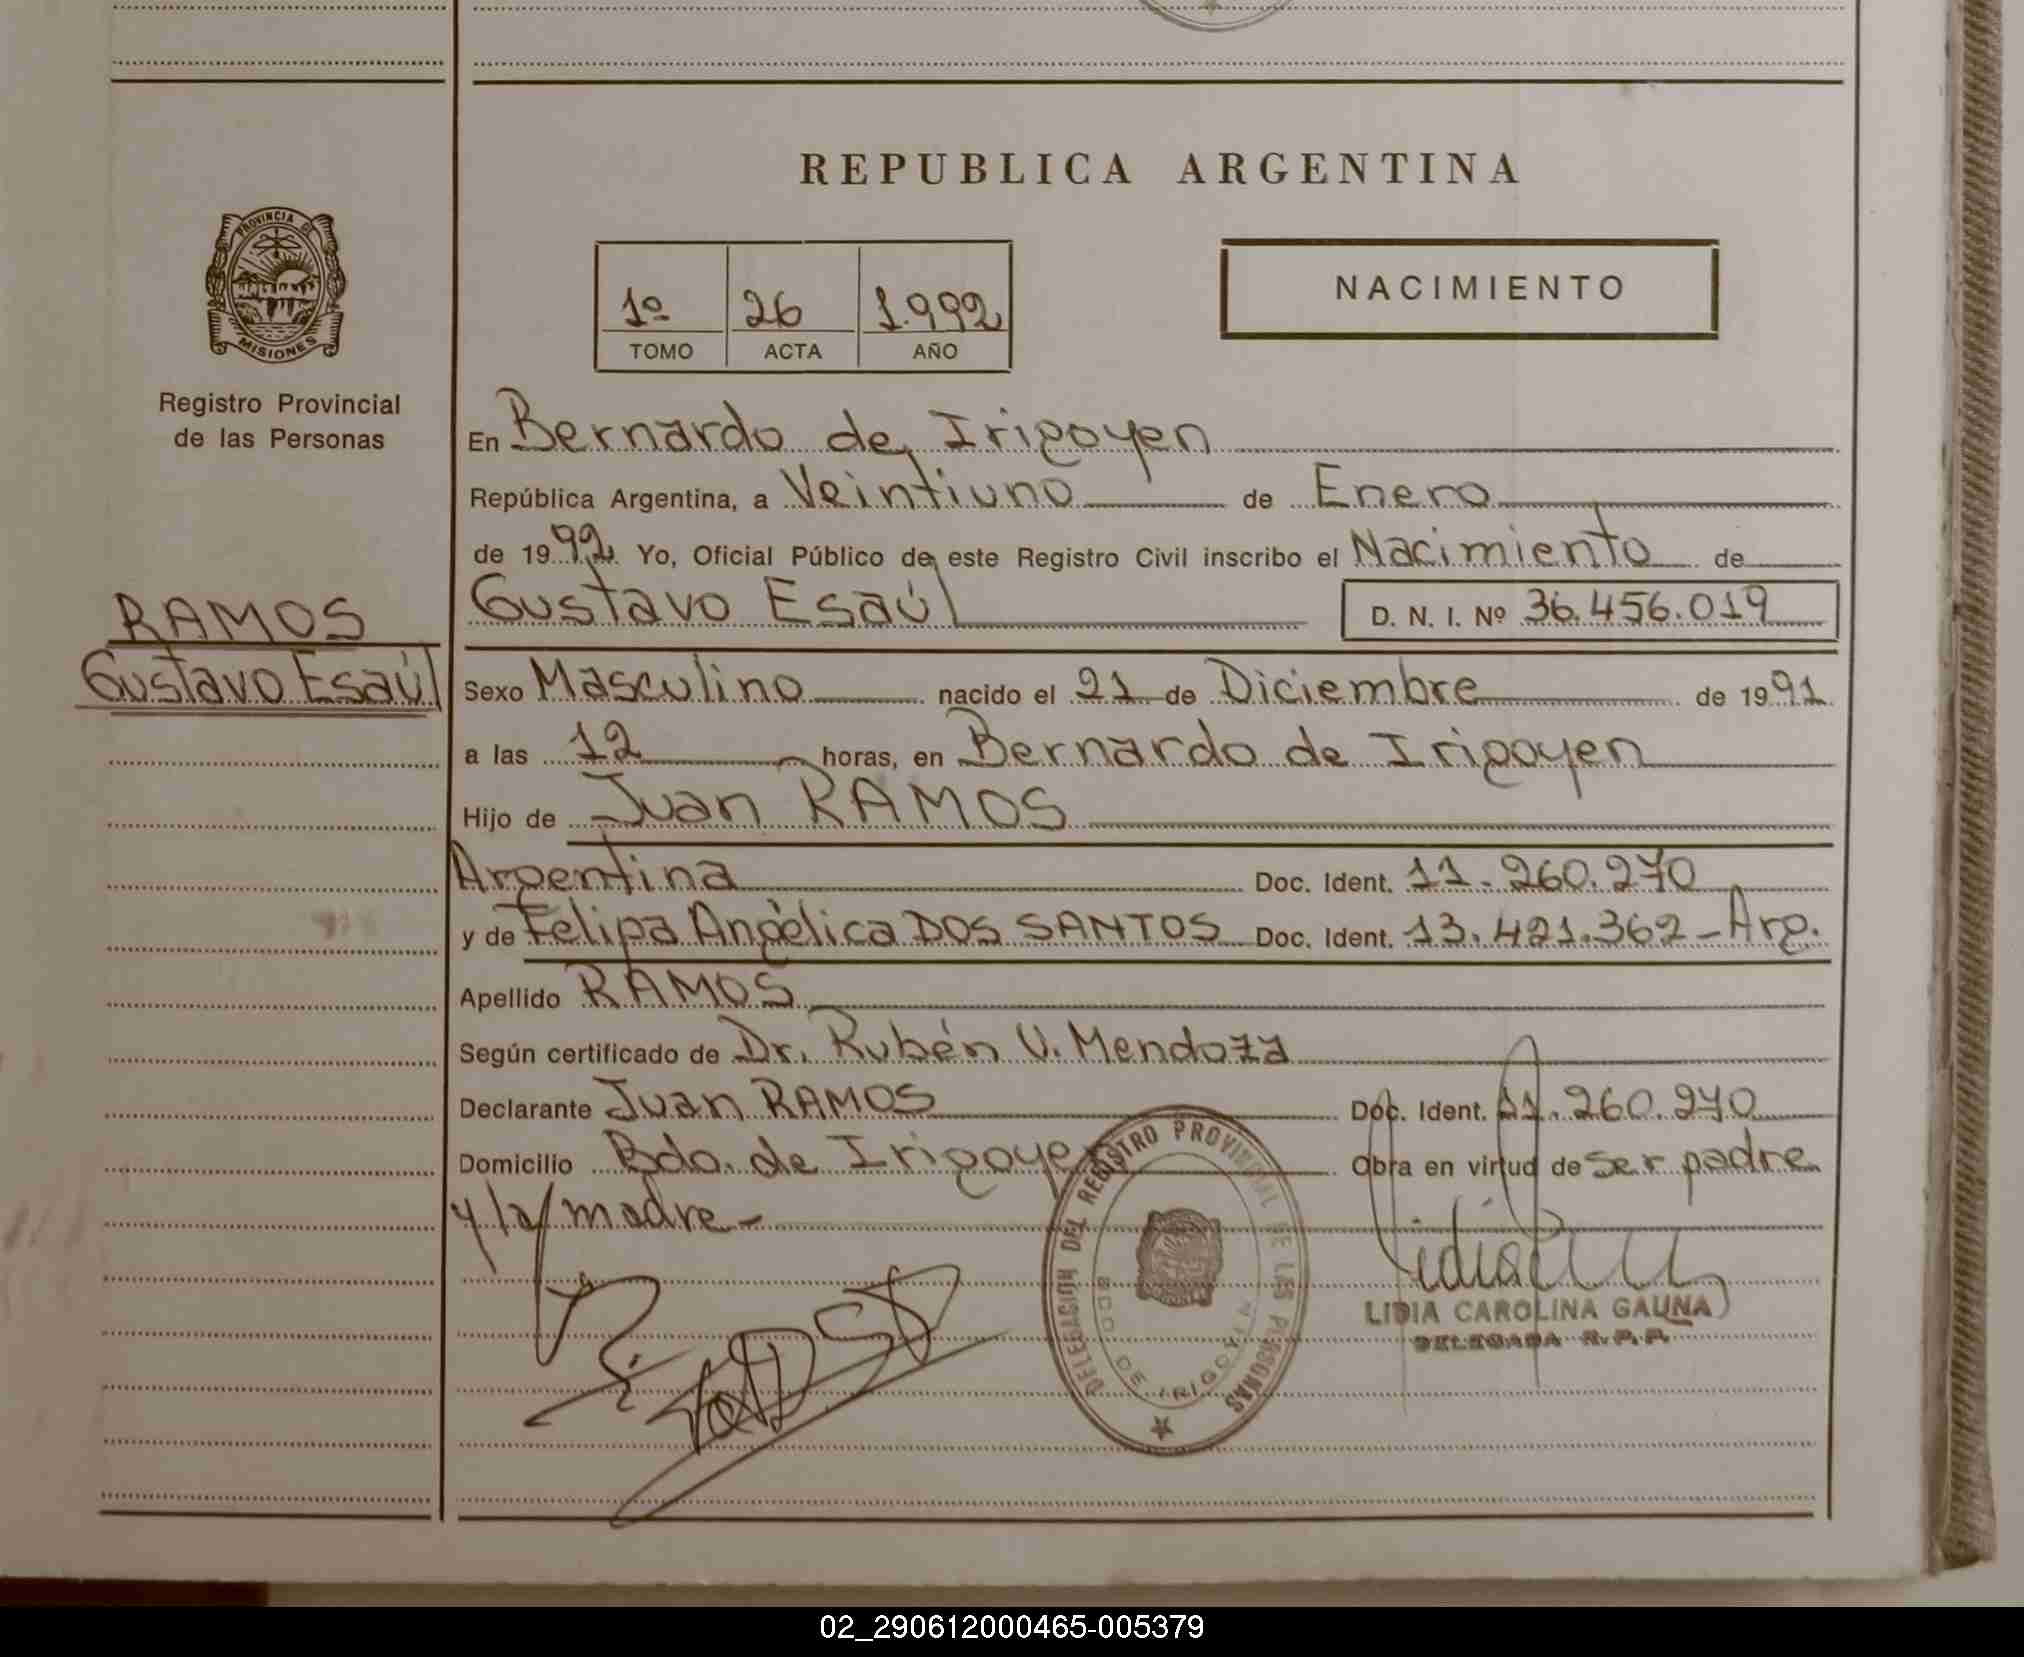 REPUBLICA ARGENTINA
PROVINCIA D
MISIONES
Registro Provincial
de las Personas
1º 26 1.992
TOMO ACTA AÑO
NACIMIENTO
En Bernardo de Irigoyen
República Argentina, a Veintiuno de Enero
de 1992 Yo, Oficial Público de este Registro Civil inscribo el Nacimiento de
RAMOS
Gustavo Esaúl
Gustavo Esaúl D. N. I. Nº 36.456.019
Sexo Masculino nacido el 21 de Diciembre de 1991
a las 12 horas, en Bernardo de Irigoyen
Hijo de Juan RAMOS
Argentina Doc. Ident. 11.260.270
y de Felipa Angélica DOS SANTOS Doc. Ident. 13.421.362-Arg.
Apellido RAMOS
Según certificado de Dr. Rubén V. Mendoza
Declarante Juan RAMOS Doc. Ident. 11.260.270
Domicilio Bdo. de Irigoyen Obra en virtud de ser padre
y/o/madre-
DELEGACIÓN DEL REGISTRO PROVINCIAL DE LAS PERSONAS
BDO DE IRIGOYEN
LIDIA CAROLINA GAUNA
DELEGADA R.P.P.
02_290612000465-005379